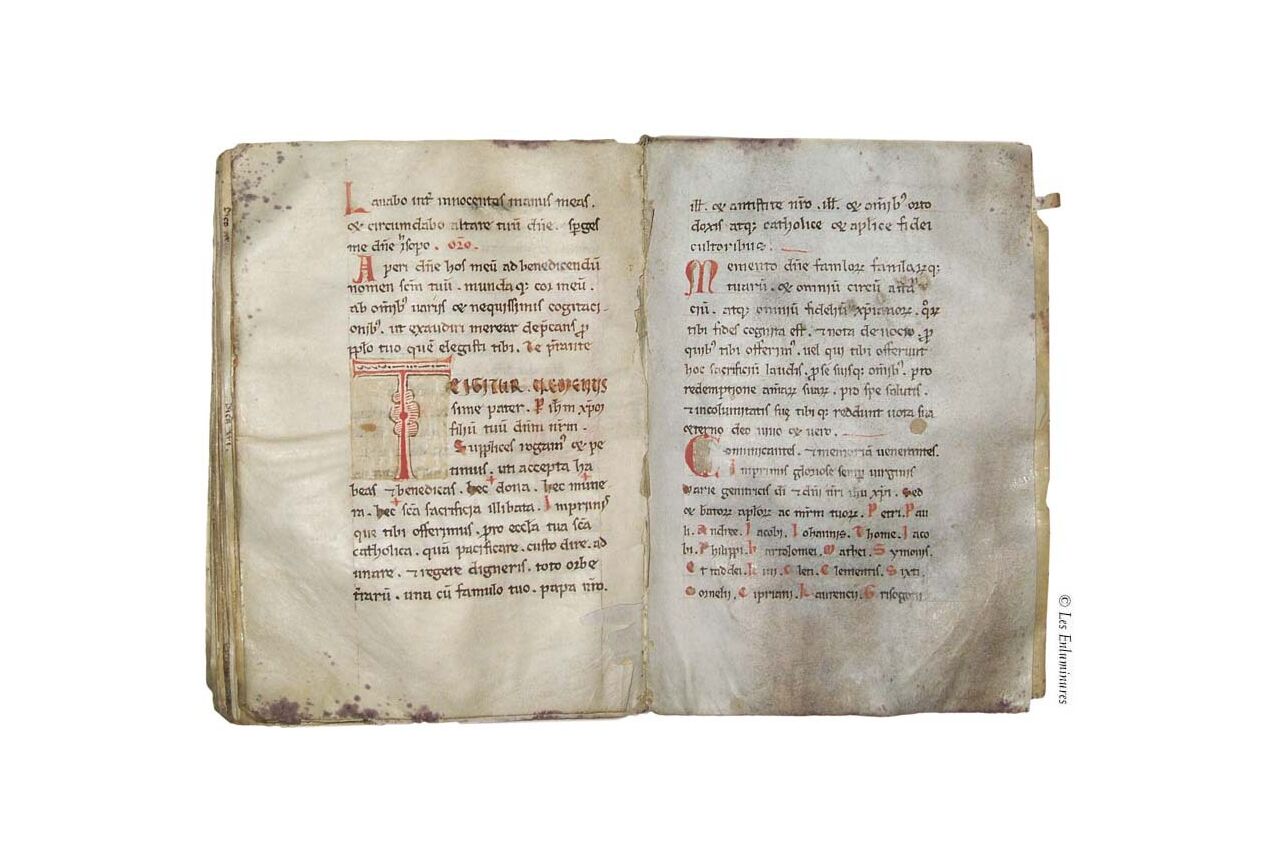 Lauabo int̄ innocentes manus meas.
⁊ circumdabo altare tuū dn̄e. sp̄ges
me dn̄e ysopo. oŕo.
Aperi dn̄e hos meū ad benedicendū
nomen sc̄m tuū. munda q; cor meū.
ab om̄ib᾽ uariis ⁊ nequissimis cogitaci
onib᾽. ut exaudiri merear dep̄cans ꝓ
pp̄lo tuo quē elegisti tibi. Te p̄stante
TE IGITUR CLEMENTIS
sime pater. P ih̄m xp̄m
filiū tuū dn̄m nr̄m.
Supplices rogam᾽ ⁊ pe
timus. uti accepta ha
beas ⁊ benedicas. hec dona. hec mune
ra. hec sc̄a sacrificia illibata. Inprimis
que tibi offerimus. pro eccl̄a tua sc̄a
catholica. quā pacificare. custo dire. ad
unare. ⁊ regere digneris. toto orbe
t̄rarū. una cū famulo tuo. papa nr̄o.
ill̄. ⁊ antistite nr̄o. ill̄. ⁊ om̄ib᾽ orto
doxis atq; catholice ⁊ aplīce fidei
cultoribus.
Memento dn̄e famuloꝝ famularūq;
tuarū. ⁊ omniū circū asta
ciū. atq; omniū fideliū xp̄ianoꝝ. qōꝝ
tibi fides cognita est. ⁊ nota deuocio. ꝓ
quib᾽ tibi offerim᾽. uel qui tibi offerunt
hoc sacrificiū laudis. ꝓ se suisq; om̄ib᾽. pro
redemptione am̄aꝝ suaꝝ. pro spe salutis.
⁊ incolumitatis suę tibi q; reddunt uota sua
ęterno deo uiuo ⁊ uero.
Communicantes. ⁊ memoriā uenerantes.
Inprimis gloriose semp̄ uirginis
Marie genitricis di ⁊ dn̄i nr̄i ihu xp̄i. Sed
⁊ beatoꝝ aplōꝝ ac mr̄m tuoꝝ. Petri. Pau
li. Andree. Iacobi. Iohannis. Thome. Iaco
bi. Philippi. Bartolomei. Mathei. Symonis.
Et taddei. Lini. Cleti. Clementis. Sixti.
Cornelii. Cipriani. Laurencii. Grisogoni
© Les Enluminures